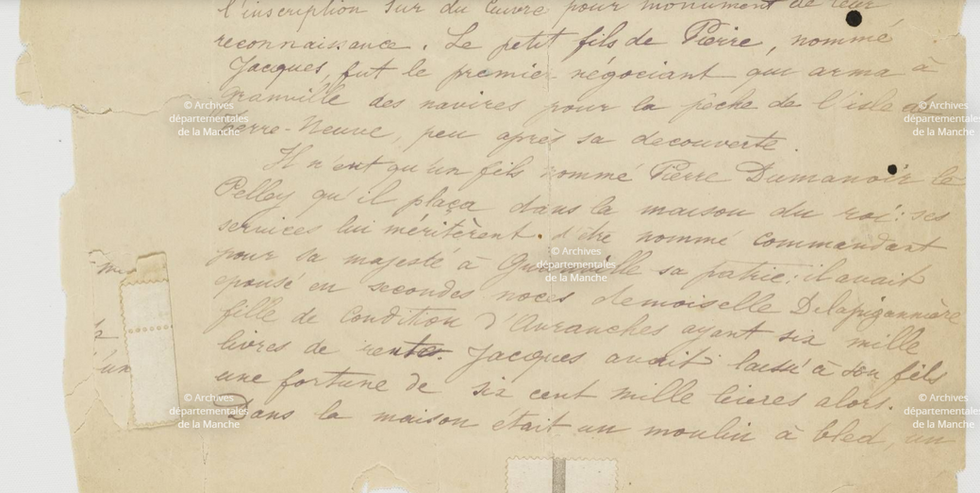 l'inscription sur du cuivre pour monument de leur
reconnaissance. Le petit fils de Pierre, nommé
Jacques, fut le premier négociant qui arma à
Granville des navires pour la pêche de l'isle de
Terre-Neuve, peu après sa decouverte.
Il n'ent qu'un fils nommé Pierre Dumanoir le
Pelley qu'il plaça dans la maison du roi: ses
services lui méritèrent d'être nommé commandant
pour sa majesté à Granville sa patrie: il avait
epousé en secondes noces demoiselle Delapigannière
fille de Condition d'Avranches ayant six mille
livres de rente. Jacques avait laissé à son fils
une fortune de six cent mille livres alors.
Dans la maison était un moulin à bled, un
© Archives
départementales
de la Manche
© Archives
départementales
de la Manche
© Archives
départementales
de la Manche
© Archives
départementales
de la Manche
© Archives
départementales
de la Manche